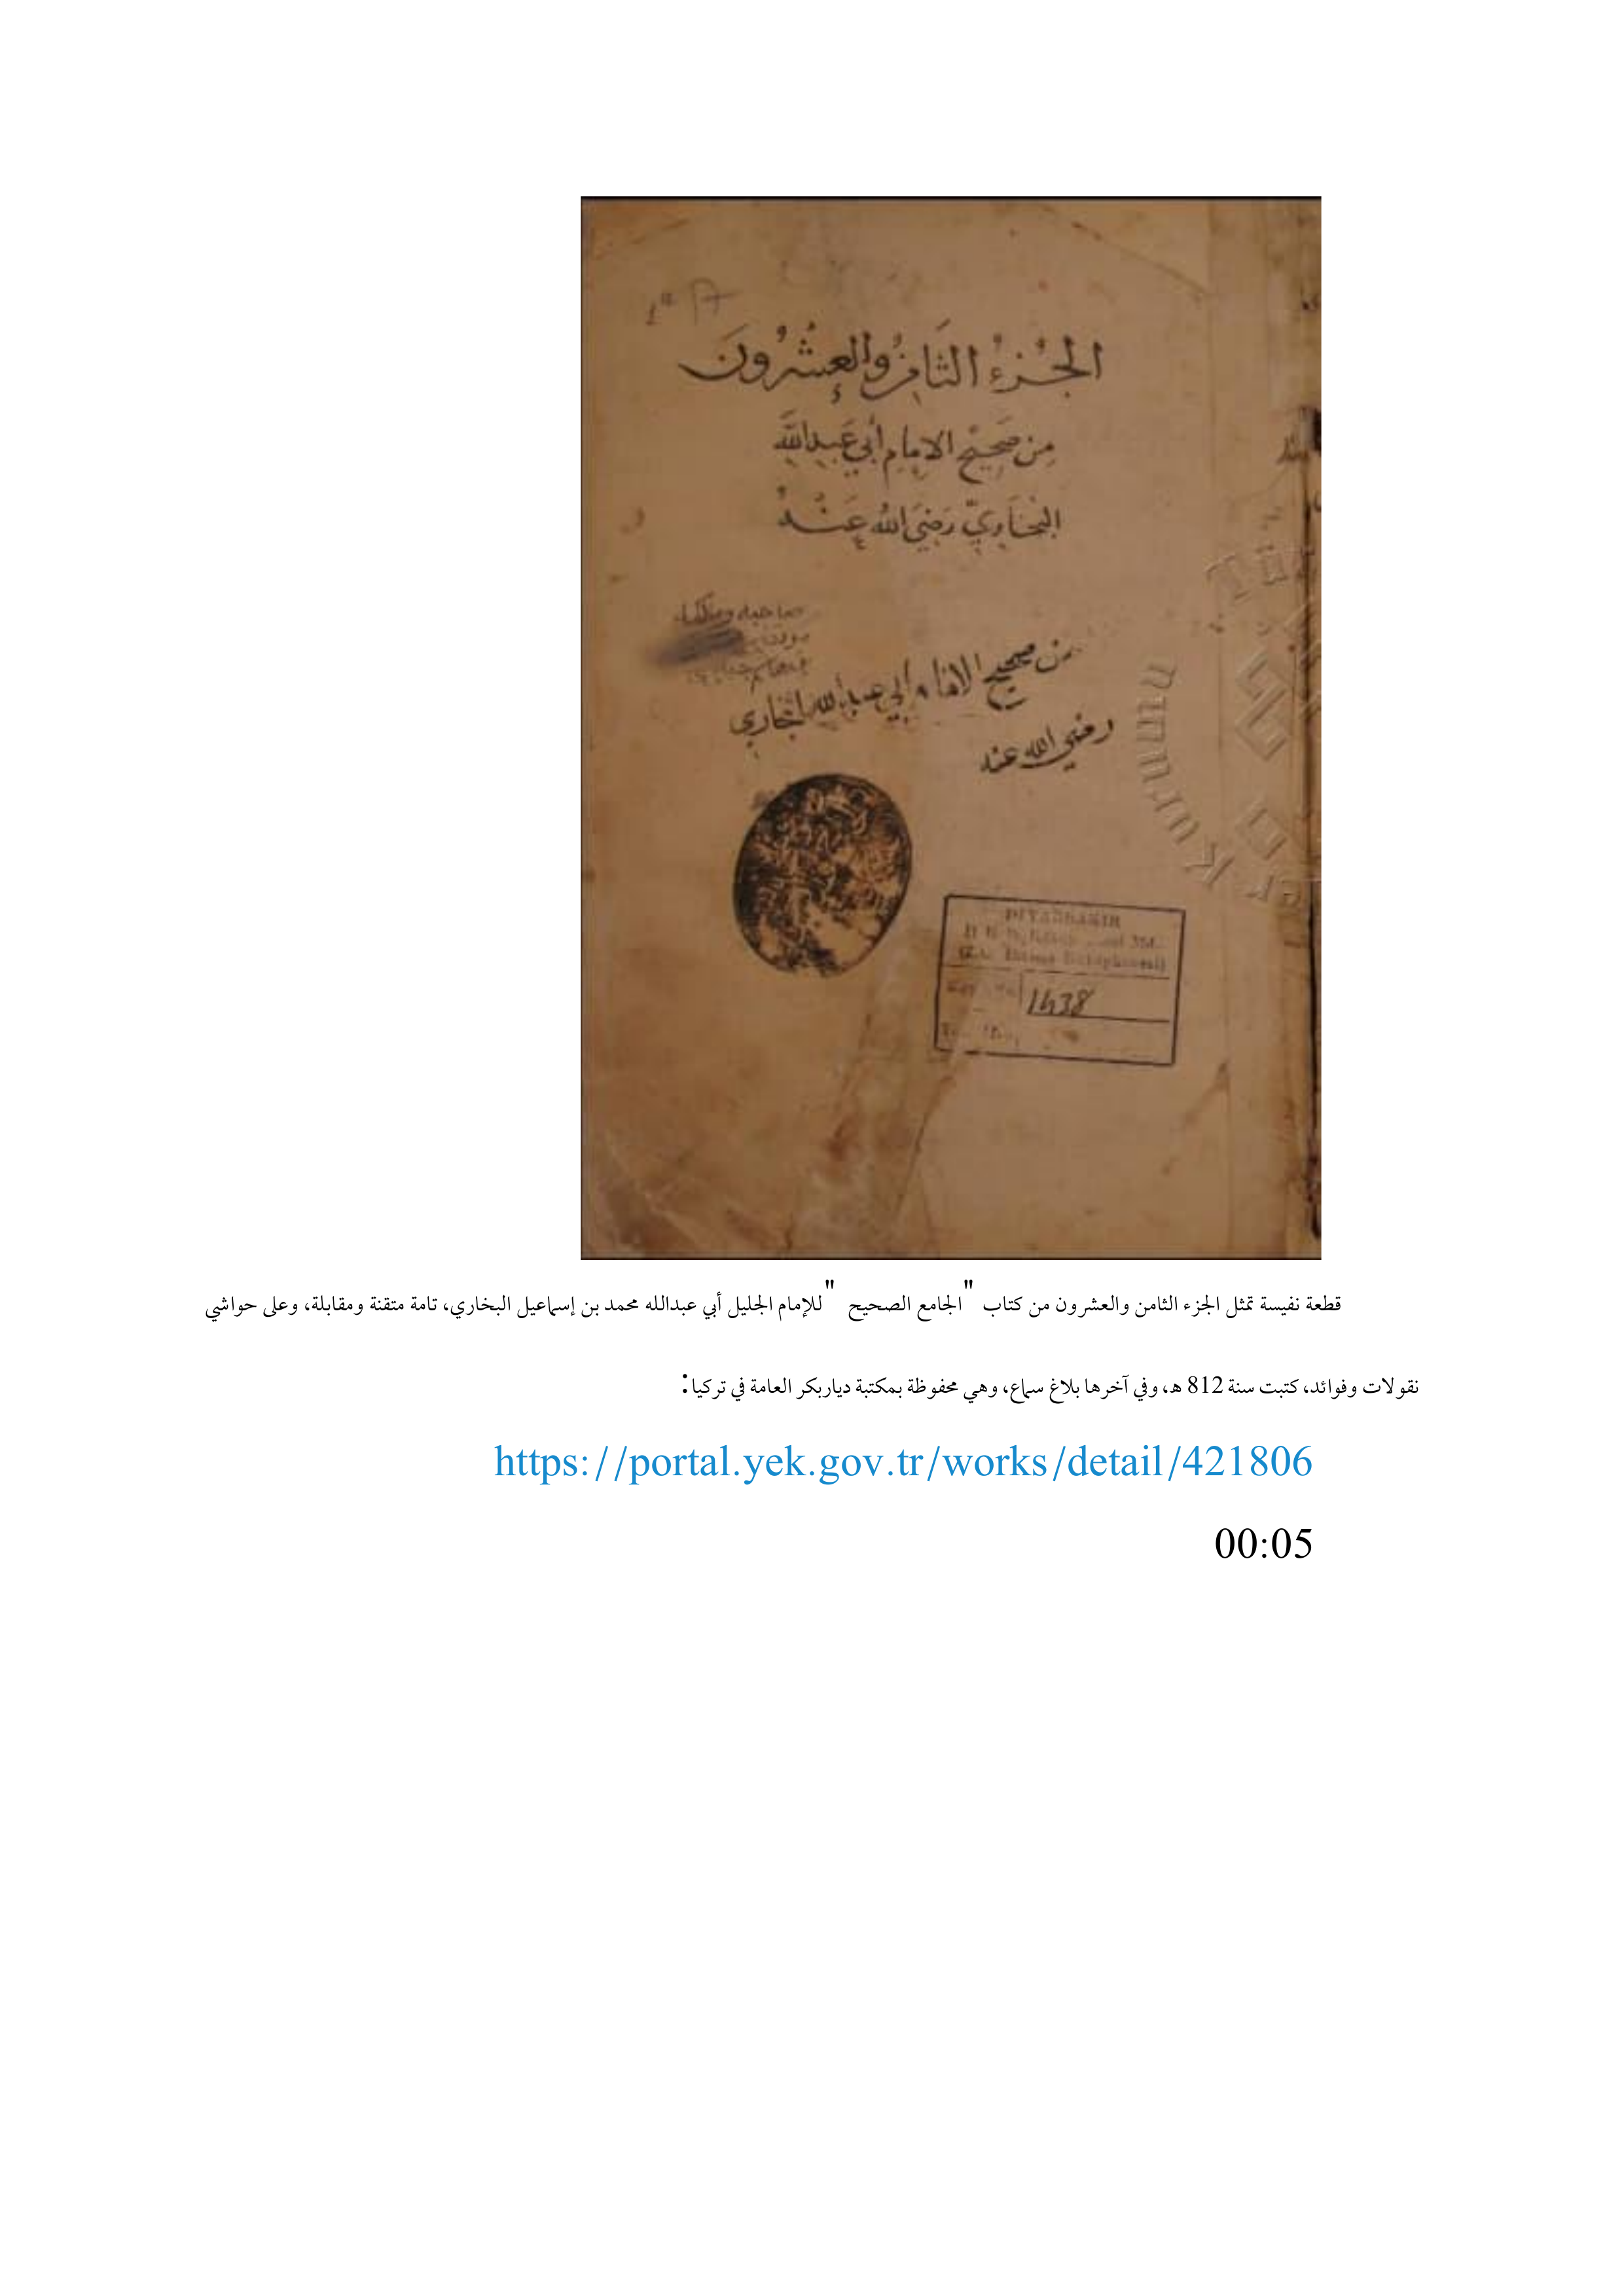 الجُزءُ الثَّامِنُ والعِشْرُونَ
مِن صَحِيحِ الامام أبي عَبدِ اللَّه
البُخَاريّ رَضِيَ اللهُ عَنْهُ
صاحبه ومالكه
من صحيح الامام ابي عبد الله البخاري
رضي الله عنه
DIYARBAKIR
1438
قطعة نفيسة تمثل الجزء الثامن والعشرون من كتاب "الجامع الصحيح" للإمام الجليل أبي عبدالله محمد بن إسماعيل البخاري، تامة متقنة ومقابلة، وعلى حواشي
نقولات وفوائد، كتبت سنة 812 هـ، وفي آخرها بلاغ سماع، وهي محفوظة بمكتبة دياربكر العامة في تركيا:
https://portal.yek.gov.tr/works/detail/421806
00:05